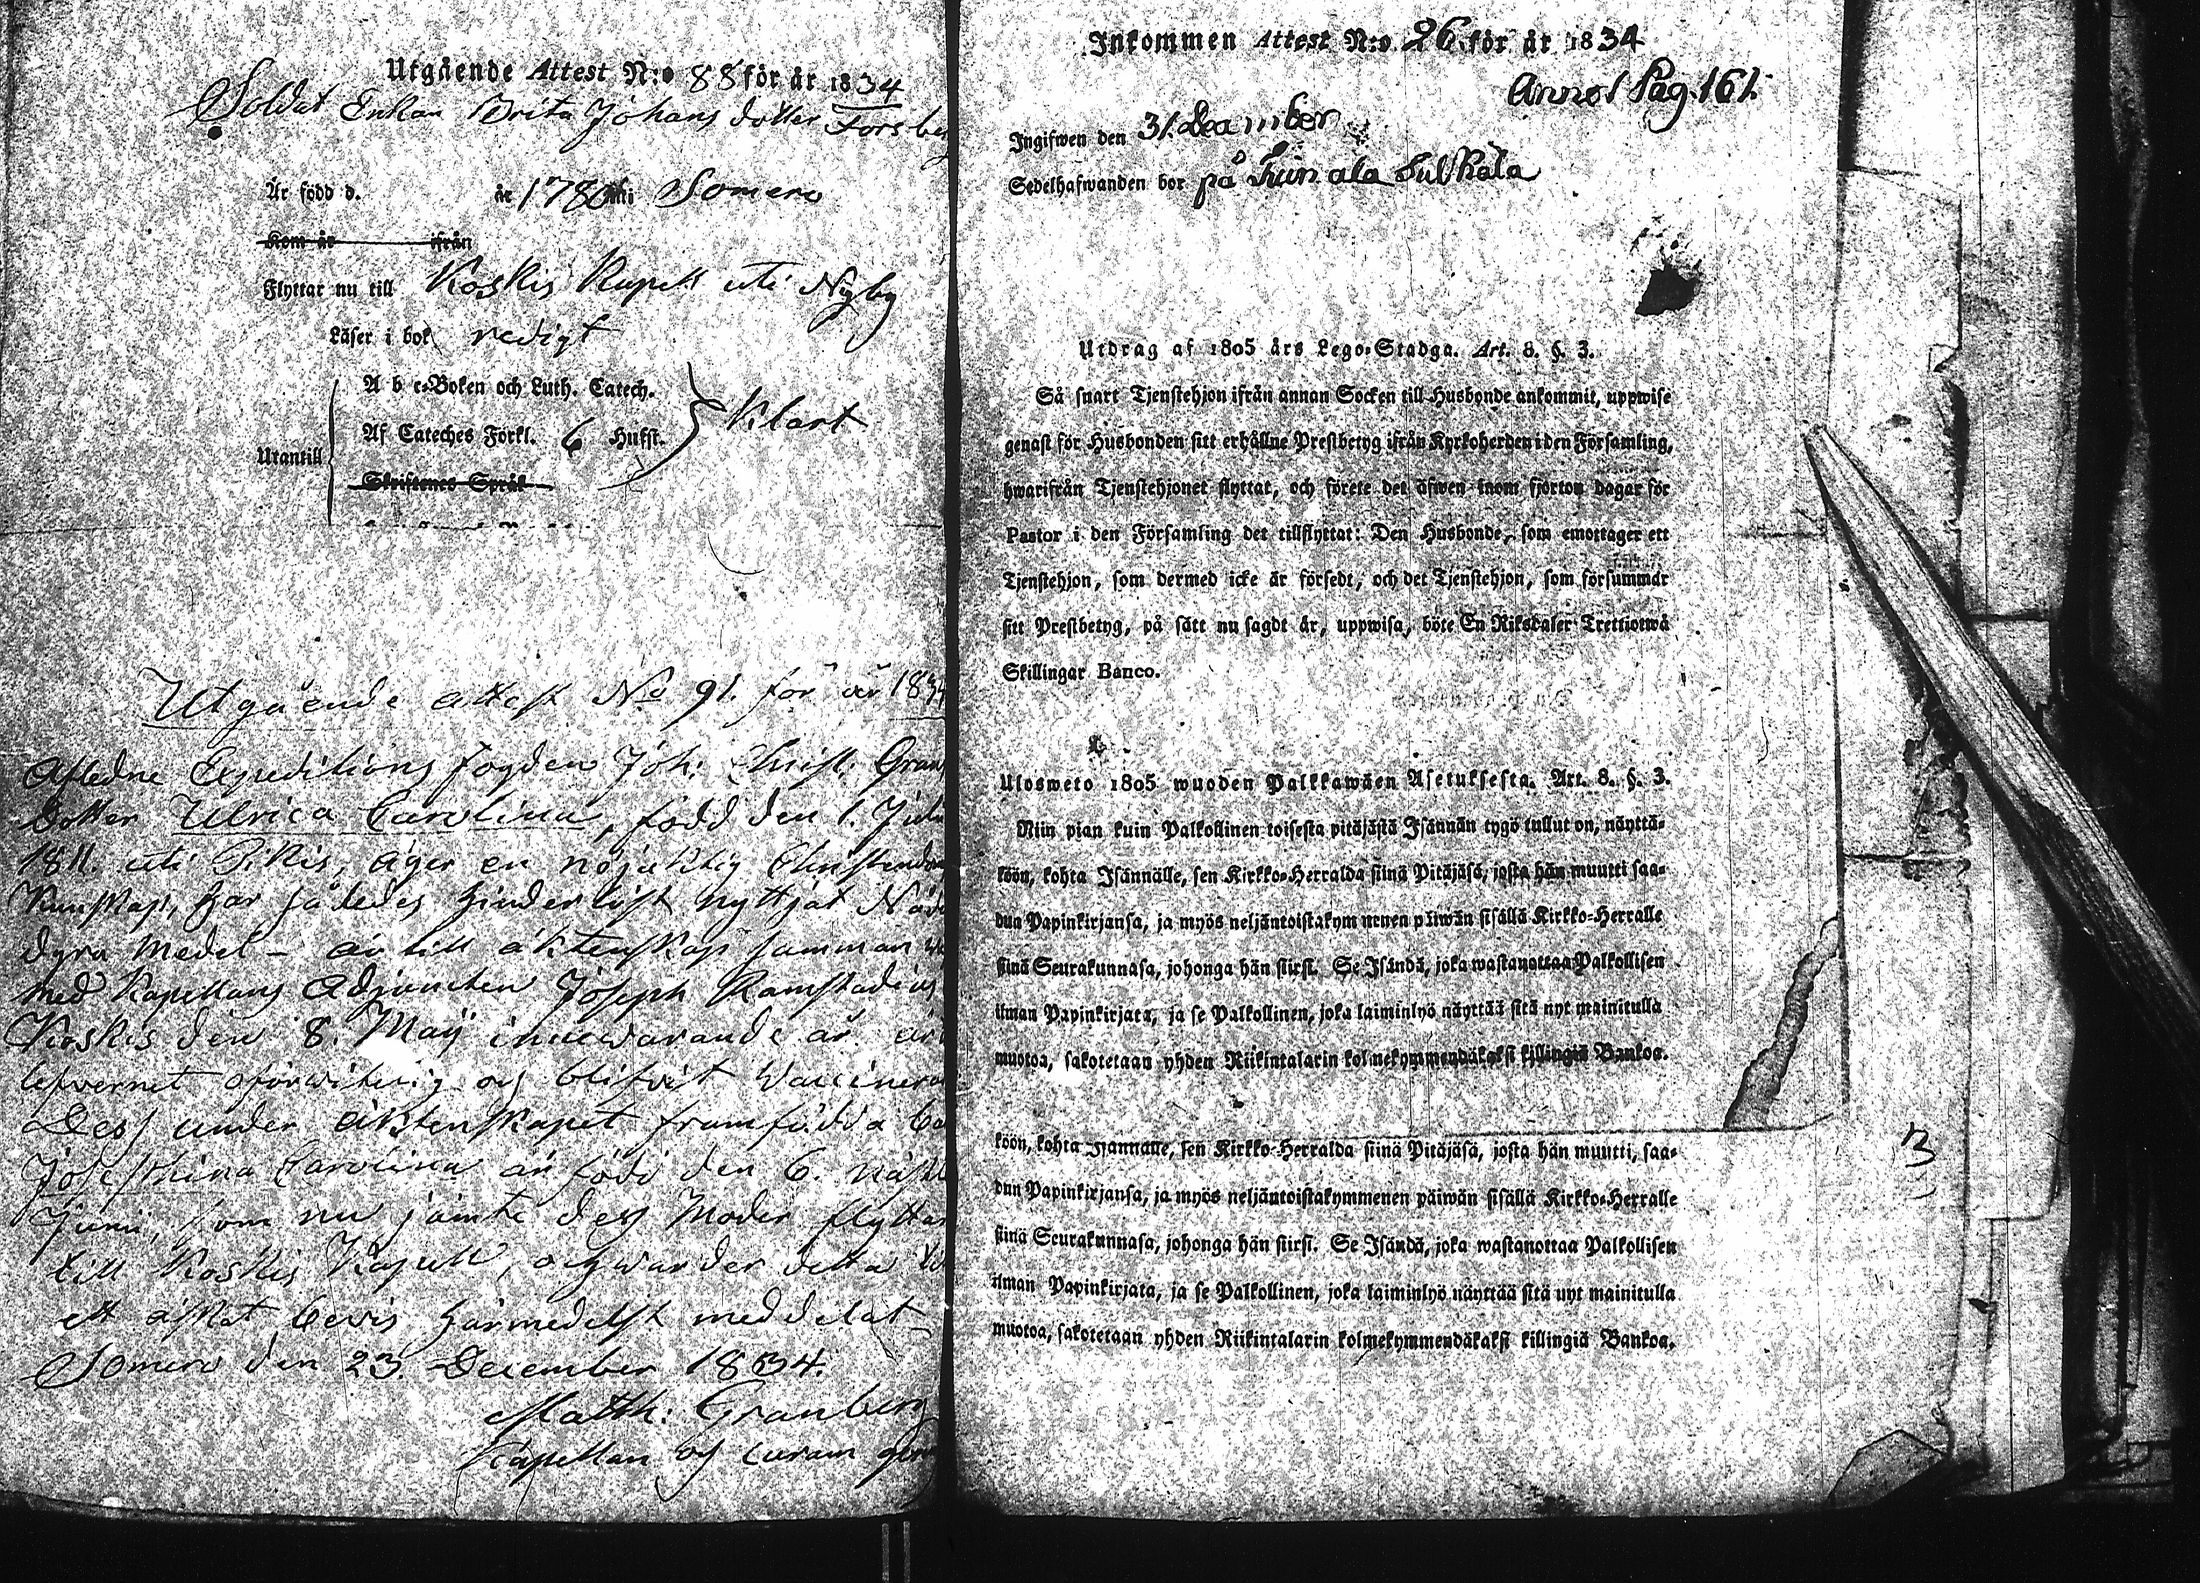 Utgående Attest N:o 88 för år 1834
Soldat Enkan Brita Johans dotter Forsberg
Är född d. år 1780 uti Somero
Kom år ifrån
Flyttar nu till Koskis Kapell uti Nyby
Läser i bok redigt
A b c-Boken och Luth. Catech.
Af Cateches Förkl. 6 Hufst. Klart
Utantill
Skriftenes Språk
Utgående attest No 91. för år 1834
Afledne Expeditions fogden Joh: Christ: Gran
Dotter Ulrica Carolina, född den 1. Juli
1811. uti Pikis, äger en nöjaktig Christendoms
Kunskap, har således hinderlöst nyttjat Nåd
dyra Medel – är till äktenskap samman
med Kapellans Adjuncten Joseph Ramstadius
Koskis den 8. Maij innewarande år är
lefvernet oförwitelig och blifvit Vaccinerad
Dess under äktenskapet framfödda
Josephina Carolina är född den 6. näst
Junii, som nu jämte dess Moder flyttar
till Koskis Kapell, och warder detta
ett äskat bevis härmedelst meddelat
Somero den 23. December 1834.
Matth: Granberg
Kapellan och curam
Inkommen Attest N:o 26 för år 1834
Annot Pag. 161.
Ingifwen den 31. December
Sedelhafwanden bor på
Utdrag af 1805 års Lego-Stadga. Art. 8. §. 3.
Så snart Tjenstehjon ifrån annan Socken till Husbonde ankommit, uppwise
genast för Husbonden sitt erhållne Prestbetyg ifrån Kyrkoherden i den Församling,
hwarifrån Tjenstehjonet flyttat, och förete det äfwen inom fjorton dagar för
Pastor i den Församling det tillflyttat: Den Husbonde, som emottager ett
Tjenstehjon, som dermed icke är försedt, och det Tjenstehjon, som försummar
sitt Prestbetyg, på sätt nu sagdt är, uppwisa, böte En Riksdaler Trettiotwå
Skillingar Banco.
Ulosweto 1805 wuoden Palkkawäen Asetuksesta. Art. 8. §. 3.
Niin pian kuin Palkollinen toisesta pitäjästä Isännän tygö tullut on, näyttä-
köön, kohta Isännälle, sen Kirkko-Herralda siinä Pitäjäsä, josta hän muutti saa-
dun Papinkirjansa, ja myös neljäntoistakymmenen päiwän sisällä Kirkko-Herralle
siinä Seurakunnasa, johonga hän siirsi. Se Isändä, joka wastanottaa Palkollisen
ilman Papinkirjata, ja se Palkollinen, joka laiminlyö näyttää sitä nyt mainitulla
muotoa, sakotetaan yhden Riikintalarin kolmekymmendäkaksi killingiä Bankoa.
köön, kohta Isännälle, sen Kirkko-Herralda siinä Pitäjäsä, josta hän muutti, saa-
dun Papinkirjansa, ja myös neljäntoistakymmenen päiwän sisällä Kirkko-Herralle
siinä Seurakunnasa, johonga hän siirsi. Se Isändä, joka wastanottaa Palkollisen
ilman Papinkirjata, ja se Palkollinen, joka laiminlyö näyttää sitä nyt mainitulla
muotoa, sakotetaan yhden Riikintalarin kolmekymmendäkaksi killingiä Bankoa.
3